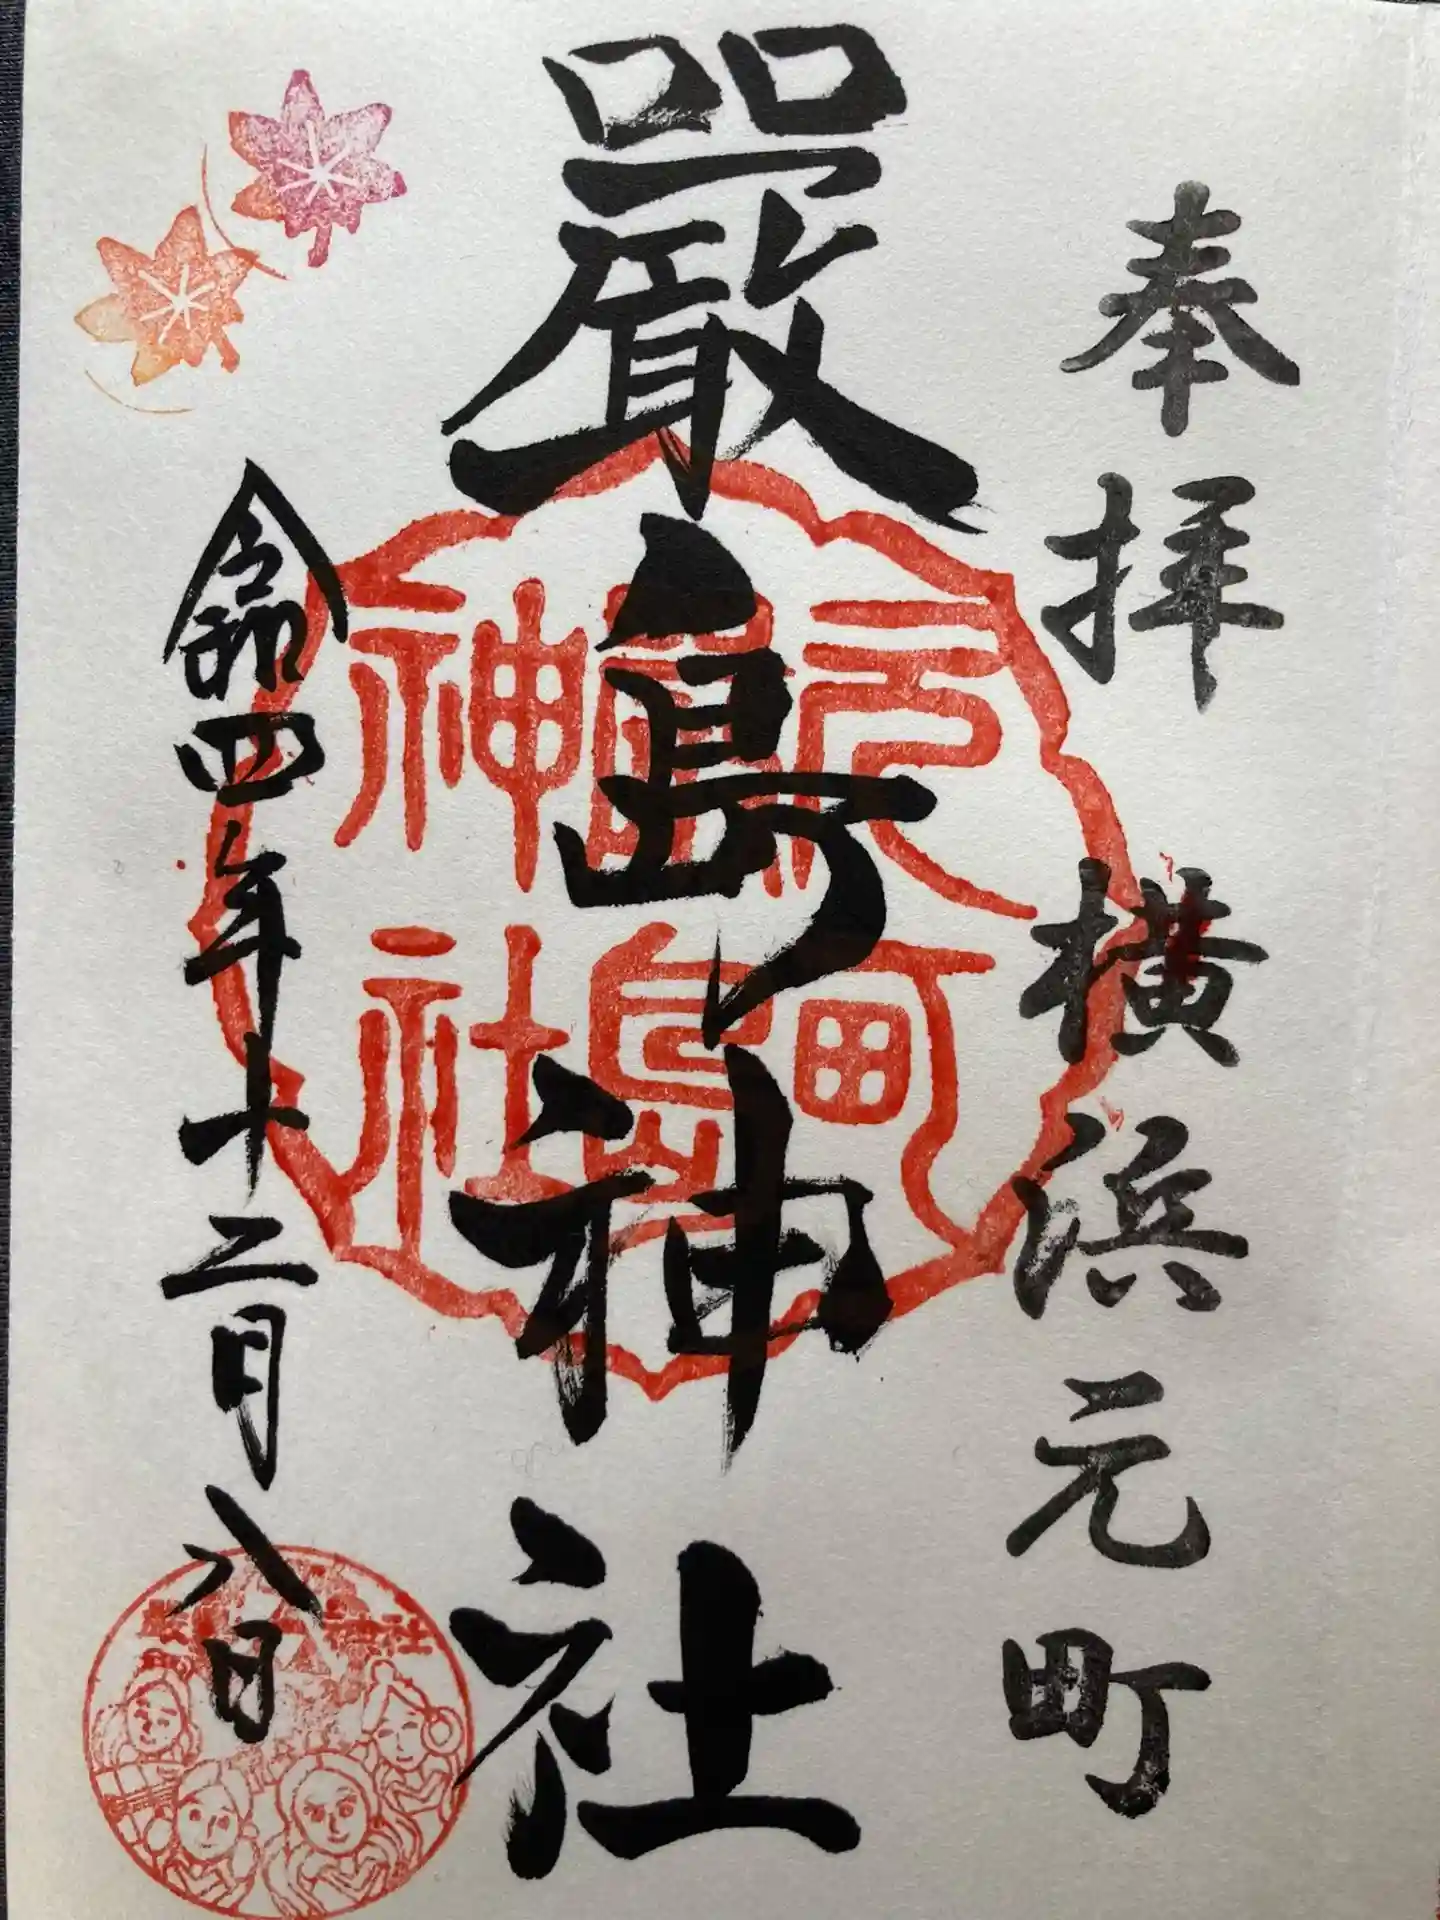 奉拝 横浜元町
嚴島神社
令和四年十二月八日
元町
嚴島
神社